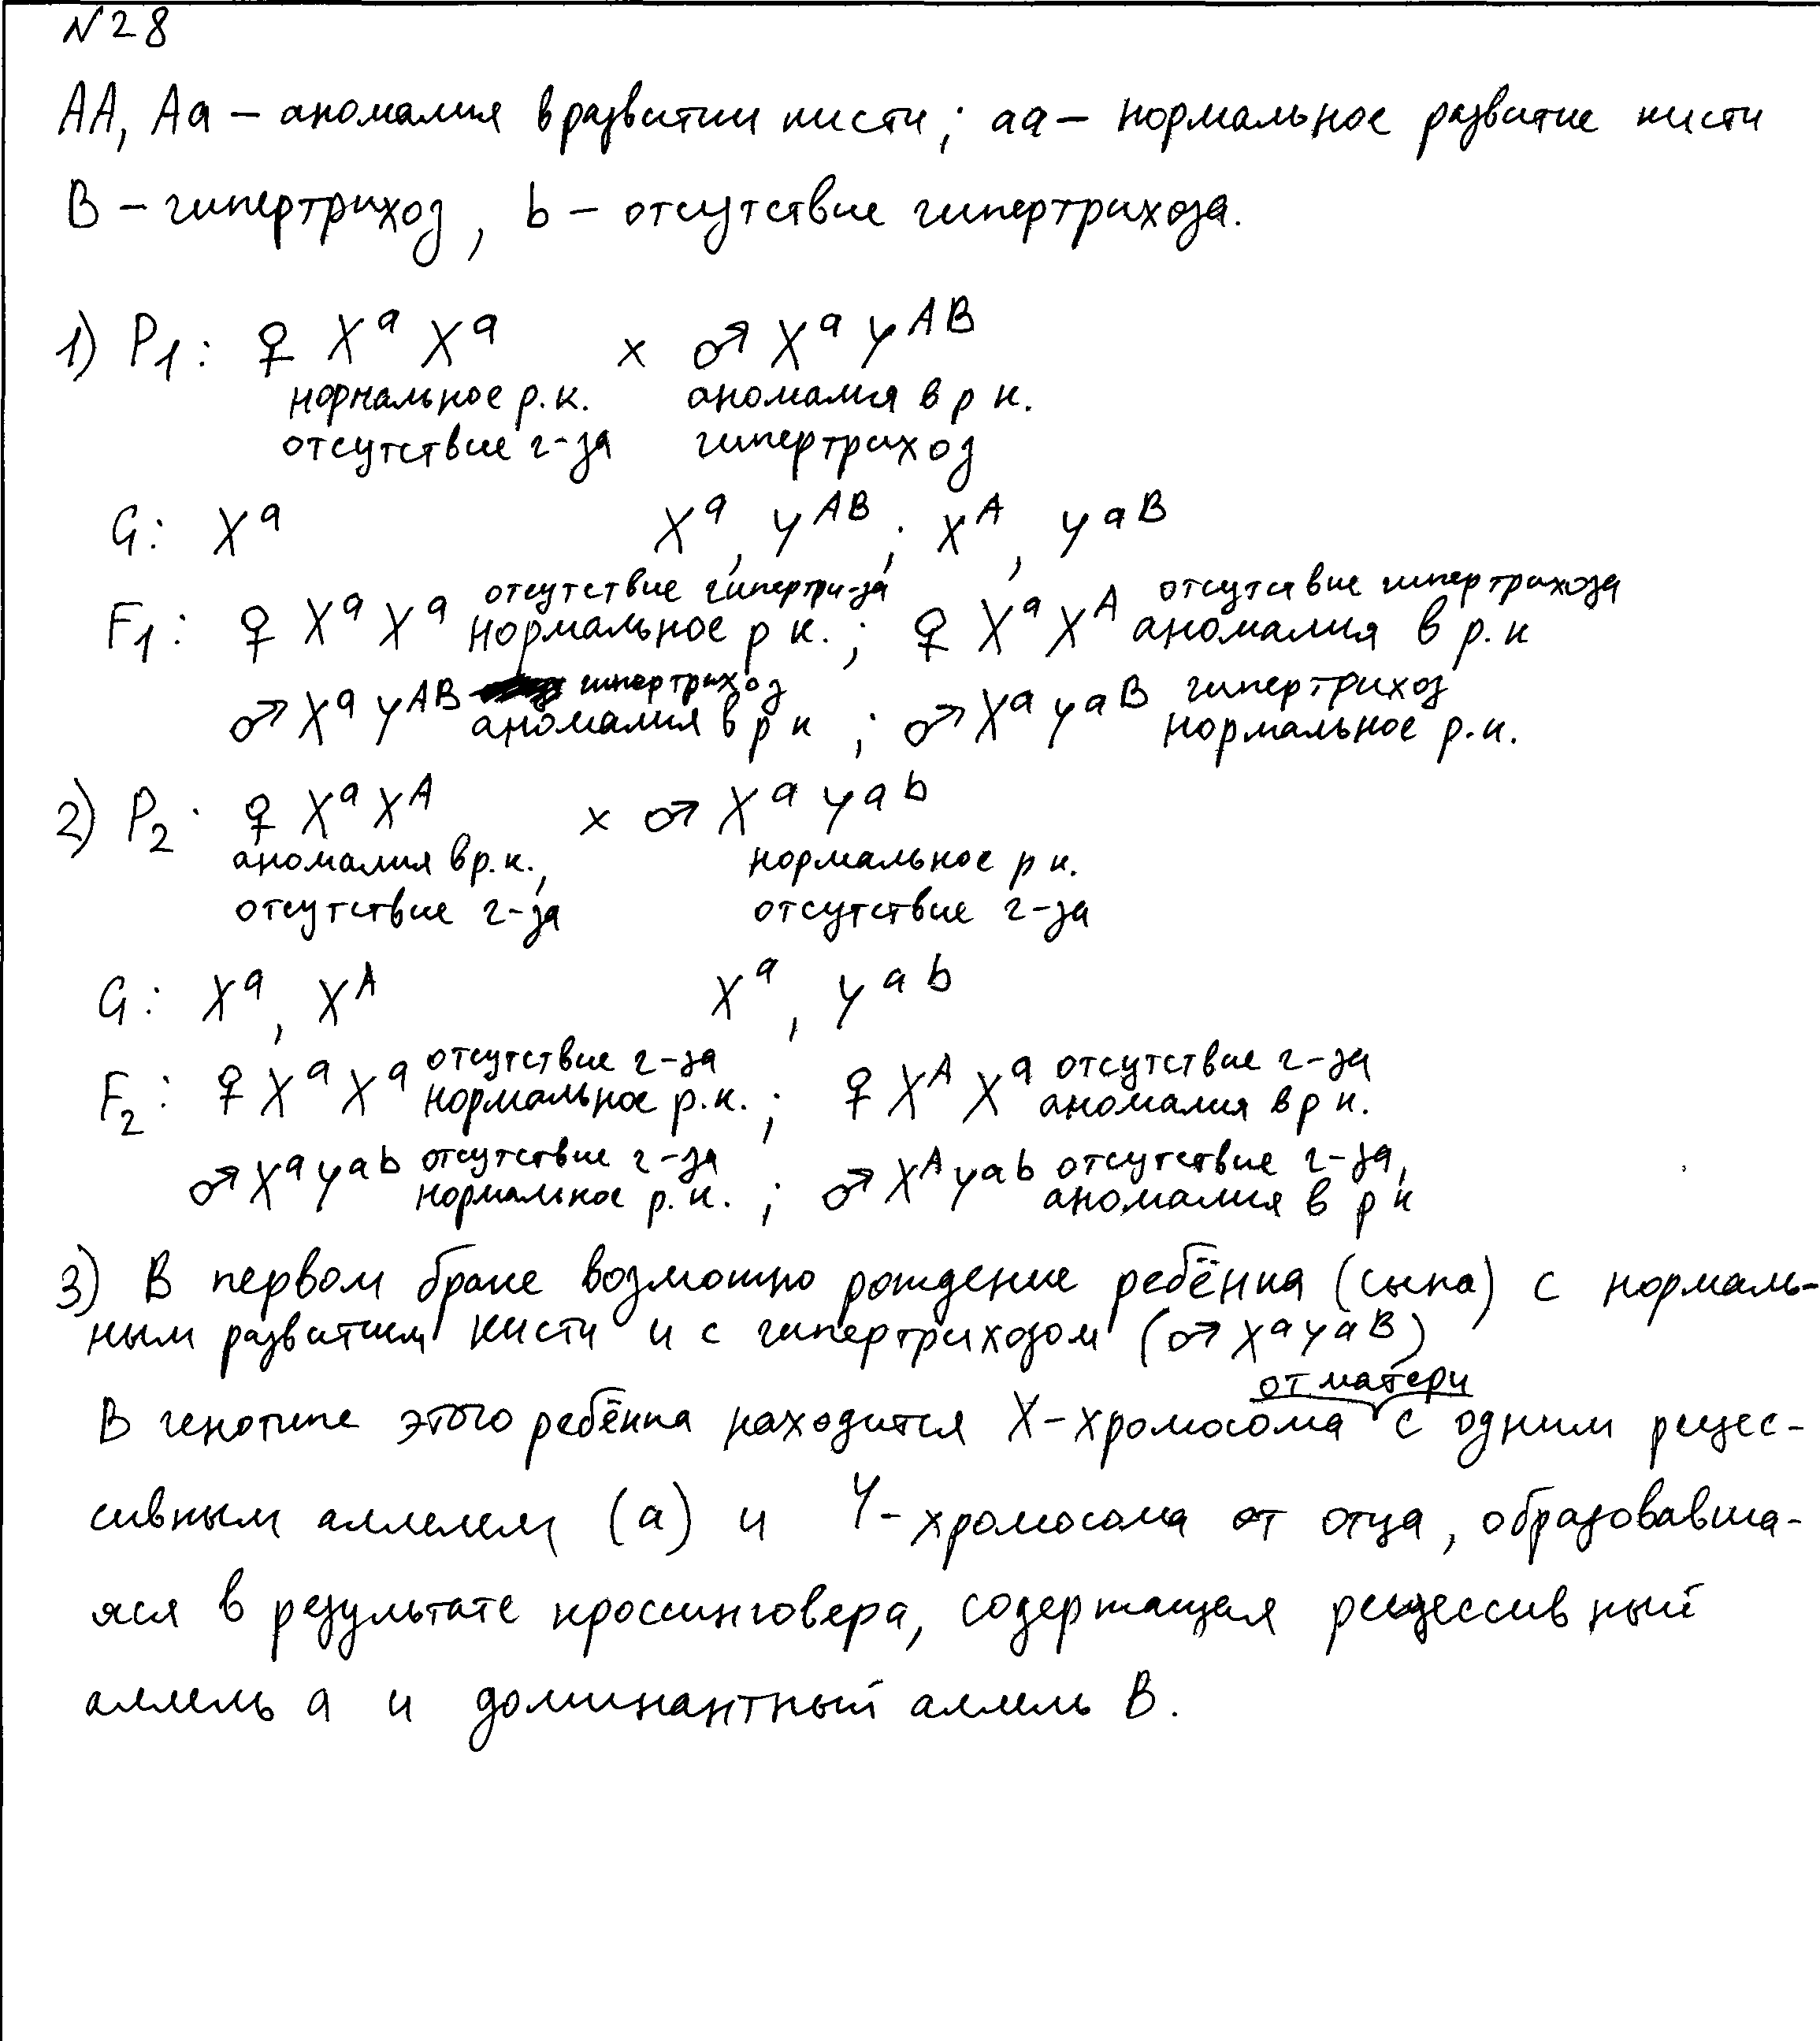 №28
AA, Aa – аномалия в развитии кисти; aa – нормальное развитие кисти
B – гипертрихоз, b – отсутствие гипертрихоза.
1) P1: ♀ X^a X^a × ♂ X^a Y^AB
нормальное р.к. аномалия в р к.
отсутствие г-за гипертрихоз
G: X^a X^a, Y^AB; X^A, Y^aB
F1: ♀ X^a X^a отсутствие гипертри-за нормальное р к. ; ♀ X^a X^A отсутсвие гипертрихоза аномалия в р.к
♂ X^a Y^AB гипертрихоз аномалия в р к ; ♂ X^a Y^aB гипертрихоз нормальное р.к.
2) P2: ♀ X^a X^A × ♂ X^a Y^ab
аномалия в р.к., нормальное р к.
отсутствие г-за отсутствие г-за
G: X^a, X^A X^a, Y^ab
F2: ♀ X^a X^a отсутствие г-за нормальное р.к. ; ♀ X^A X^a отсутствие г-за аномалия в р к.
♂ X^a Y^ab отсутствие г-за нормальное р.к. ; ♂ X^A Y^ab отсутствие г-за, аномалия в р к
3) В первом браке возможно рождение ребёнка (сына) с нормаль-
ным развитием кисти и с гипертрихозом (♂ X^a Y^aB)
В генотипе этого ребёнка находится X-хромосома от матери с одним рецес-
сивным аллелем (а) и Y-хромосома от отца, образовавша-
яся в результате кроссинговера, содержащая рецессивный
аллель а и доминантный аллель B.